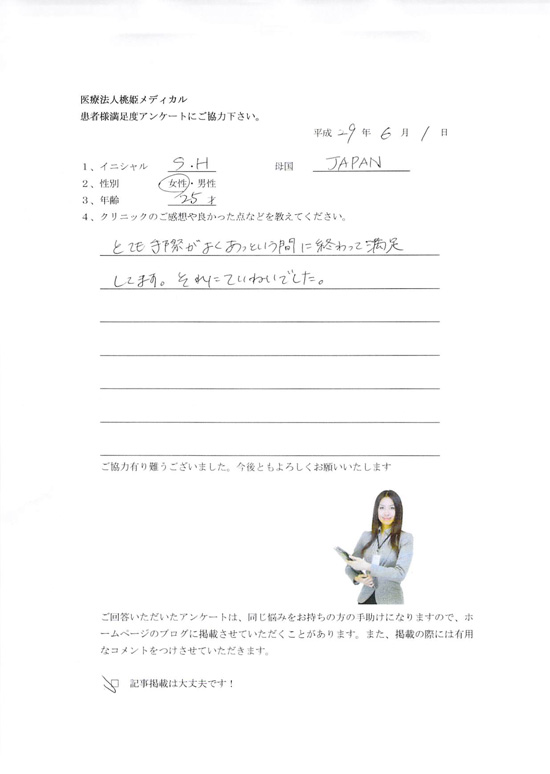 医療法人桃姫メディカル
患者様満足度アンケートにご協力下さい。
平成 29 年 6 月 1 日
1、イニシャル S.H 母国 JAPAN
2、性別 女性・男性
3、年齢 25才
4、クリニックのご感想や良かった点などを教えてください。
とても手際がよくあっという間に終わって満足
してます。それにていねいでした。
ご協力有り難うございました。今後ともよろしくお願いいたします
ご回答いただいたアンケートは、同じ悩みをお持ちの方の手助けになりますので、ホ
ームページのブログに掲載させていただくことがあります。また、掲載の際には有用
なコメントをつけさせていただきます。
□ 記事掲載は大丈夫です！